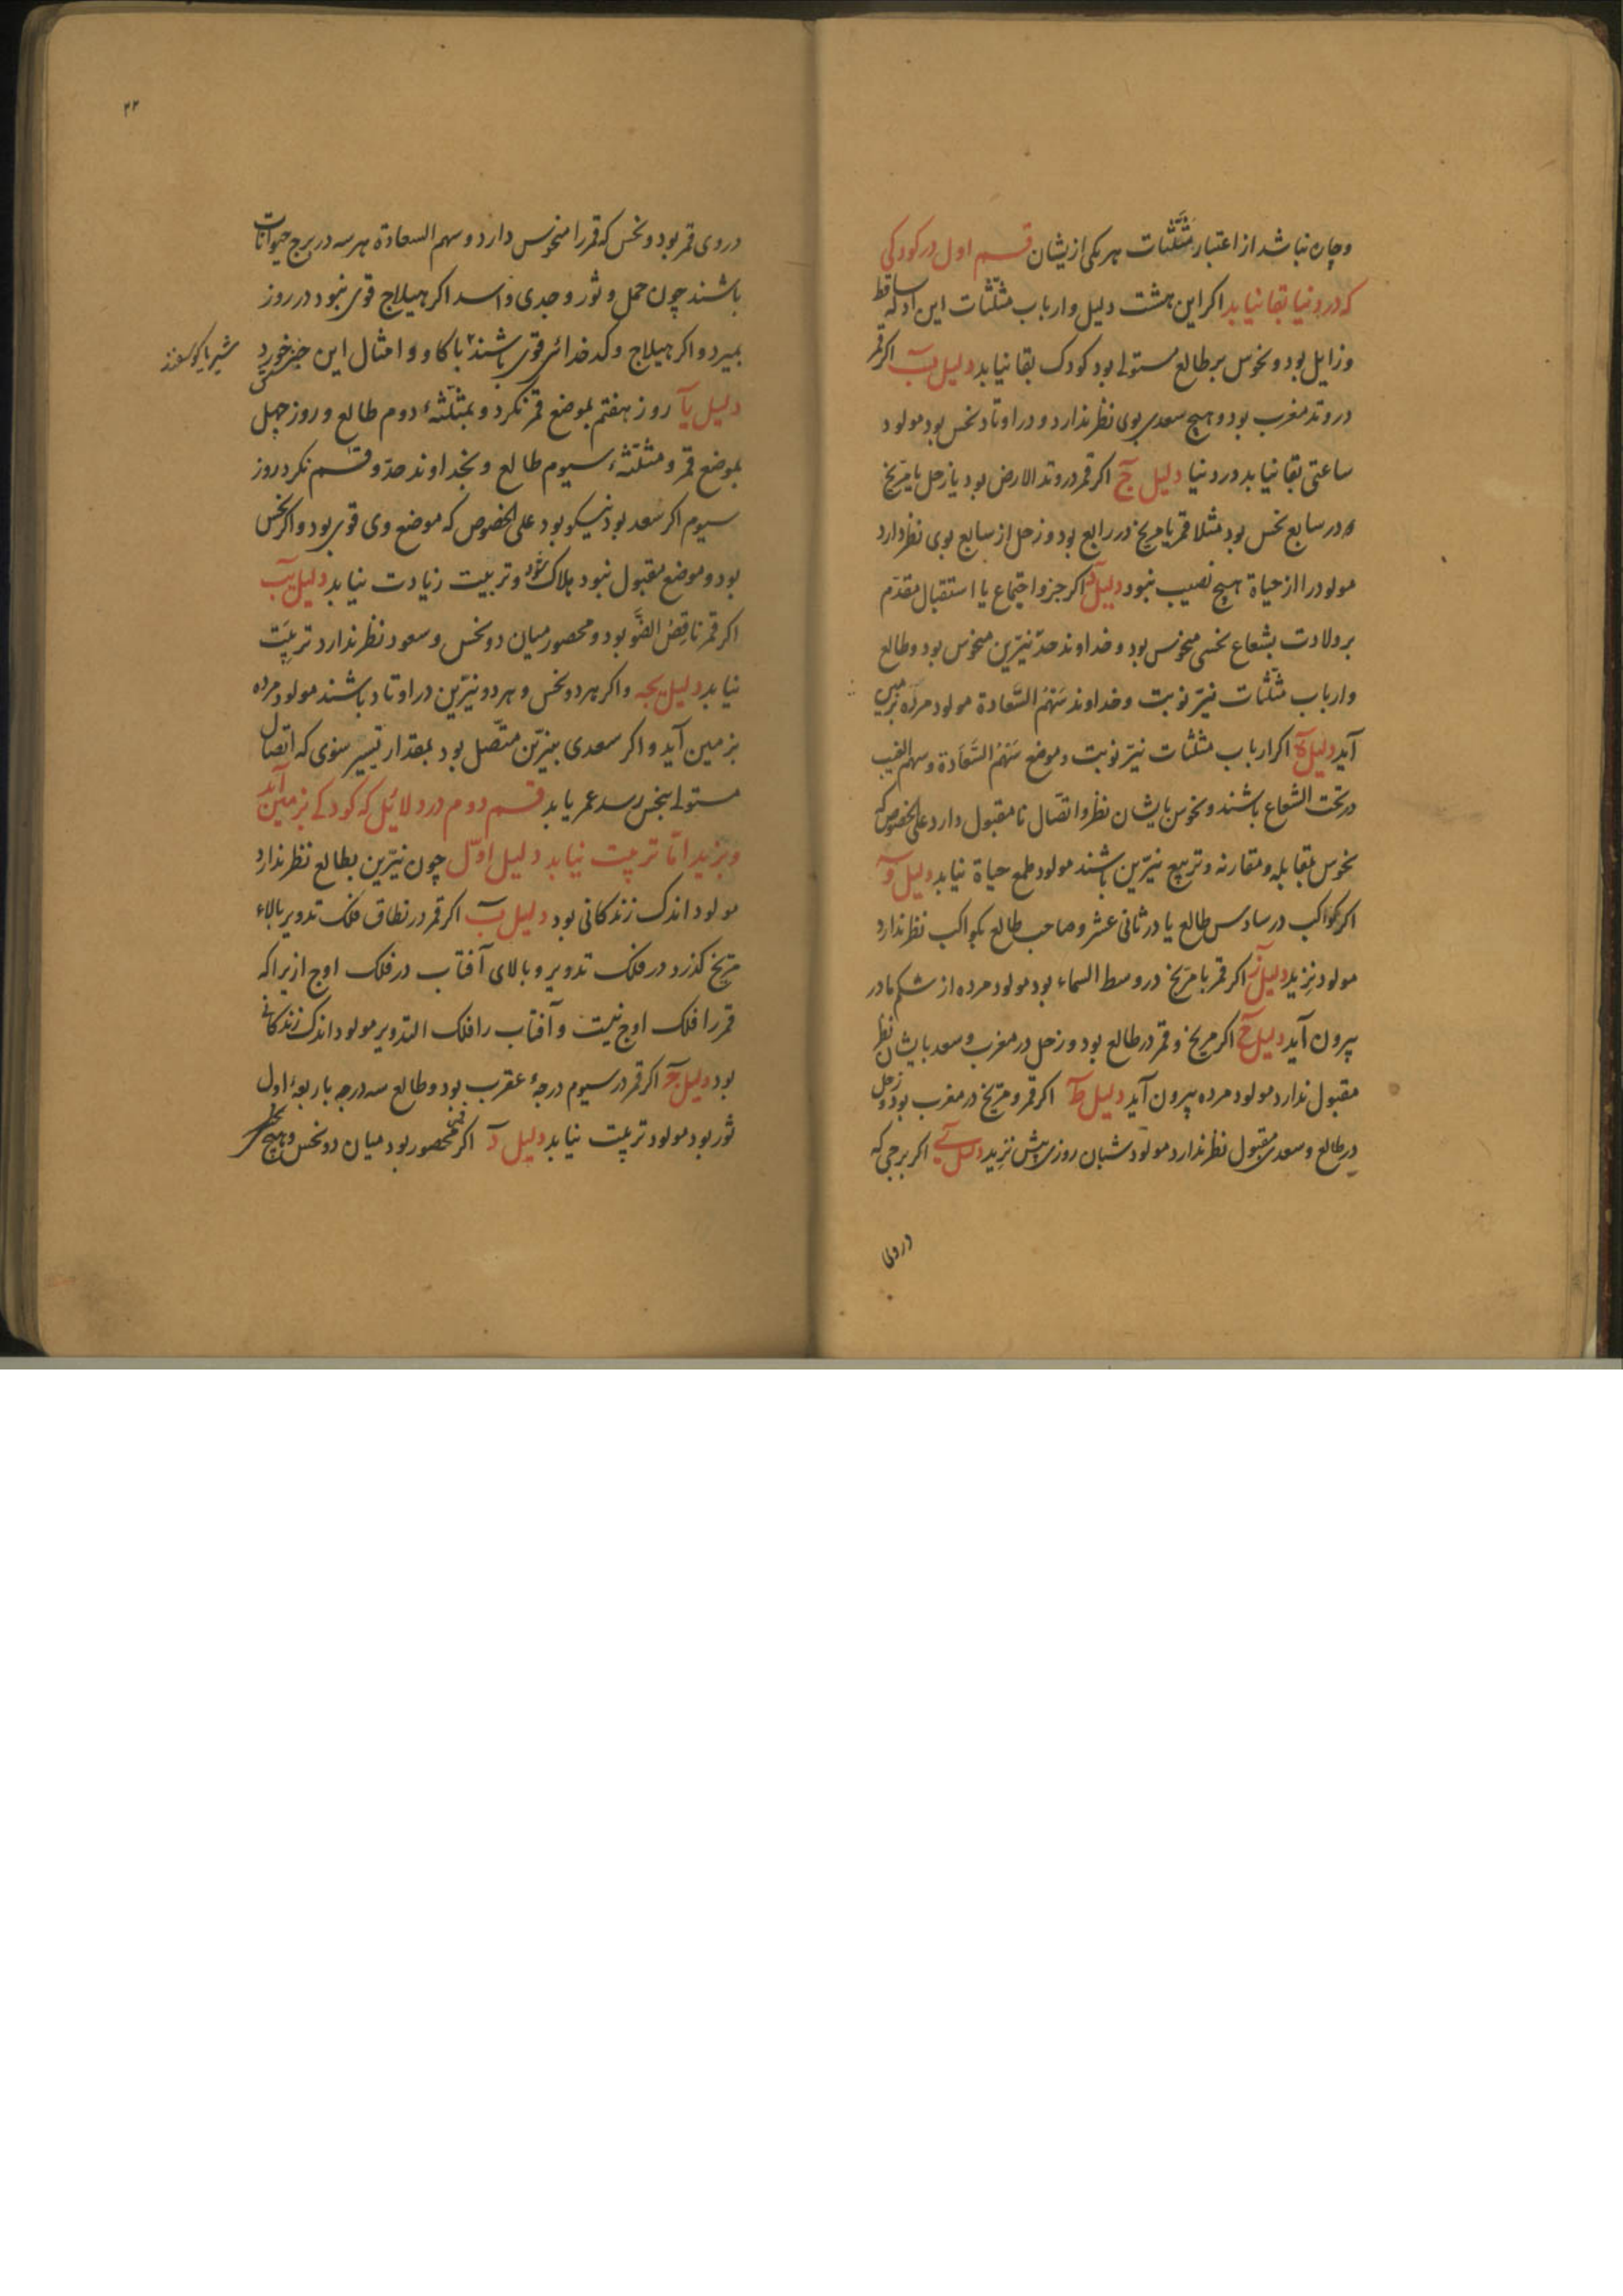 وچاره نباشد از اعتبار مثلثات هر یکی ازیشان قسم اول در کودکی
که در دنیا بقا نیابد اکر این هشت دلیل وارباب مثلثات این ادله ساقط
وزایل بود ونحوس بر طالع مستولے بود کودک بقا نیابد دلیل ب اکر قمر
در وتد مغرب بود وهیچ سعدی بوی نظر ندارد ودر اوتاد نحس بود مولود
ساعتی بقا نیابد در دنیا دلیل ج اکر قمر در وتد الارض بود یا زحل یا مریخ
و در سابع نحس بود مثلا قمر یا مریخ در رابع بود وزحل از سابع بوی نظر دارد
مولود را از حیاة هیچ نصیب نبود دلیل د اکر جزو اجتماع یا استقبال مقدم
بر ولادت بشعاع نحسی منحوس بود وخداوند حد نیرین منحوس بود وطالع
وارباب مثلثات نیر نوبت وخداوند سهم السعادة مولود مرده بزمین
آید دلیل ه اکر ارباب مثلثات نیر نوبت وموضع سهم السعادة وسهم الغیب
در تحت الشعاع باشند ونحوس بایشان نظر واتصال نامقبول دارد علی الخصوص که
نحوس بمقابله ومقارنه وتربیع نیرین باشند مولود طمع حیاة نیابد دلیل و
اکر کواکب در سادس طالع یا در ثانی عشر وصاحب طالع بکواکب نظر ندارد
مولود نزید دلیل ز اکر قمر با مریخ در وسط السماء بود مولود مرده از شکم مادر
بیرون آید دلیل ح اکر مریخ وقمر در طالع بود وزحل در مغرب وسعد بایشان نظر
مقبول ندارد مولود مرده بیرون آید دلیل ط اکر قمر ومریخ در مغرب بود وزحل
در طالع وسعدی مقبول نظر ندارد مولود شبان روزی بیش نزید دلیل ی اکر برجی که
در وی
۲۲
در وی قمر بود ونحس که قمر را منحوس دارد وسهم السعادة هر سه در برج حیوانات
باشند چون حمل وثور وجدی واسد اکر هیلاج قوی نبود در روز
بمیرد واکر هیلاج وکدخدائی قوی باشند با کاو و امثال این چیز خورد
شیر یا کوسفند
دلیل یا روز هفتم بموضع قمر نکرد وبمثلثه دوم طالع وروز چهل
بموضع قمر ومثلثه سیوم طالع وبخداوند حد وقسم نکرد روز
سیوم اکر سعد بود نیکو بود علی الخصوص که موضع وی قوی بود واکر نحس
بود وموضع مقبول نبود هلاک شود وتربیت زیادت نیابد دلیل یب
اکر قمر ناقص الضو بود ومحصور میان دو نحس وسعود نظر ندارد تربیت
نیابد دلیل یجه واکر هر دو نحس وهر دو نیرین در اوتاد باشند مولود مرده
بزمین آید واکر سعدی بنیرین متصل بود بمقدار تسییر سنوی که اتصال
مستولے بنحس رسد عمر یابد قسم دوم در دلائل که کودکے بزمین آید
وبزید اما تربیت نیابد دلیل اول چون نیرین بطالع نظر ندارد
مولود اندک زندکانی بود دلیل ب اکر قمر در نطاق فلک تدویر بالاء
مریخ کذرد در فلک تدویر وبالای آفتاب در فلک اوج ازیرا که
قمر را فلک اوج نیست وآفتاب را فلک التدویر مولود اندک زندکانے
بود دلیل ج اکر قمر در سیوم درجهٔ عقرب بود وطالع سه درجه یا ربوعهٔ اول
ثور بود مولود تربیت نیابد دلیل د اکر قمر محصور بود میان دو نحس وهیچ